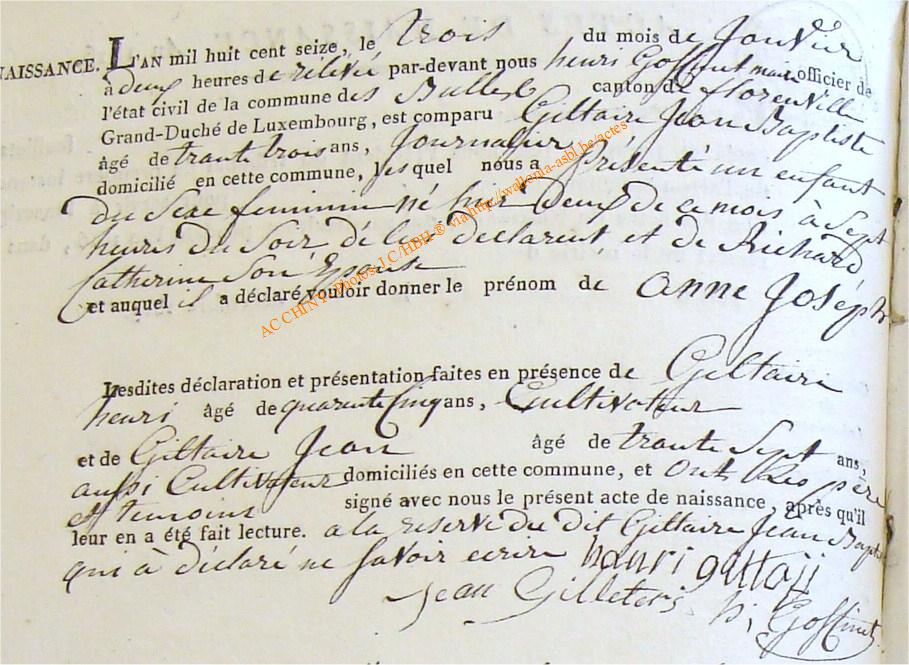 NAISSANCE. L'AN mil huit cent seize, le trois du mois de Janvier
à deux heures de relevée par-devant nous henri Goffinet maire officier de
l'état civil de la commune des Bulles canton de florenville
Grand-Duché de Luxembourg, est comparu Giltaire Jean Baptiste
âgé de trante trois ans, Journalier
domicilié en cette commune, lesquel nous a présenté un enfant
du Sexe feminin né hier deux de ce mois à Sept
heures du Soir de lui declarent et de Richard
Catherine Son Epouse
et auquel il a déclaré vouloir donner le prénom de anne Joséph
Lesdites déclaration et présentation faites en présence de Giltaire
henri âgé de quarente Cinq ans, Cultivateur
et de Giltaire Jean âgé de trante Sept ans,
aussi Cultivateur domiciliés en cette commune, et ont Les père
et temoins signé avec nous le présent acte de naissance, après qu'il
leur en a été fait lecture. a la reserve du dit Giltaire Jean Bap
qui à déclaré ne Savoir ecrire henri
Jean h, Goffinet
AC CHINY Photos J.C/HBH ® via http://wallonia-asbl.be/actes